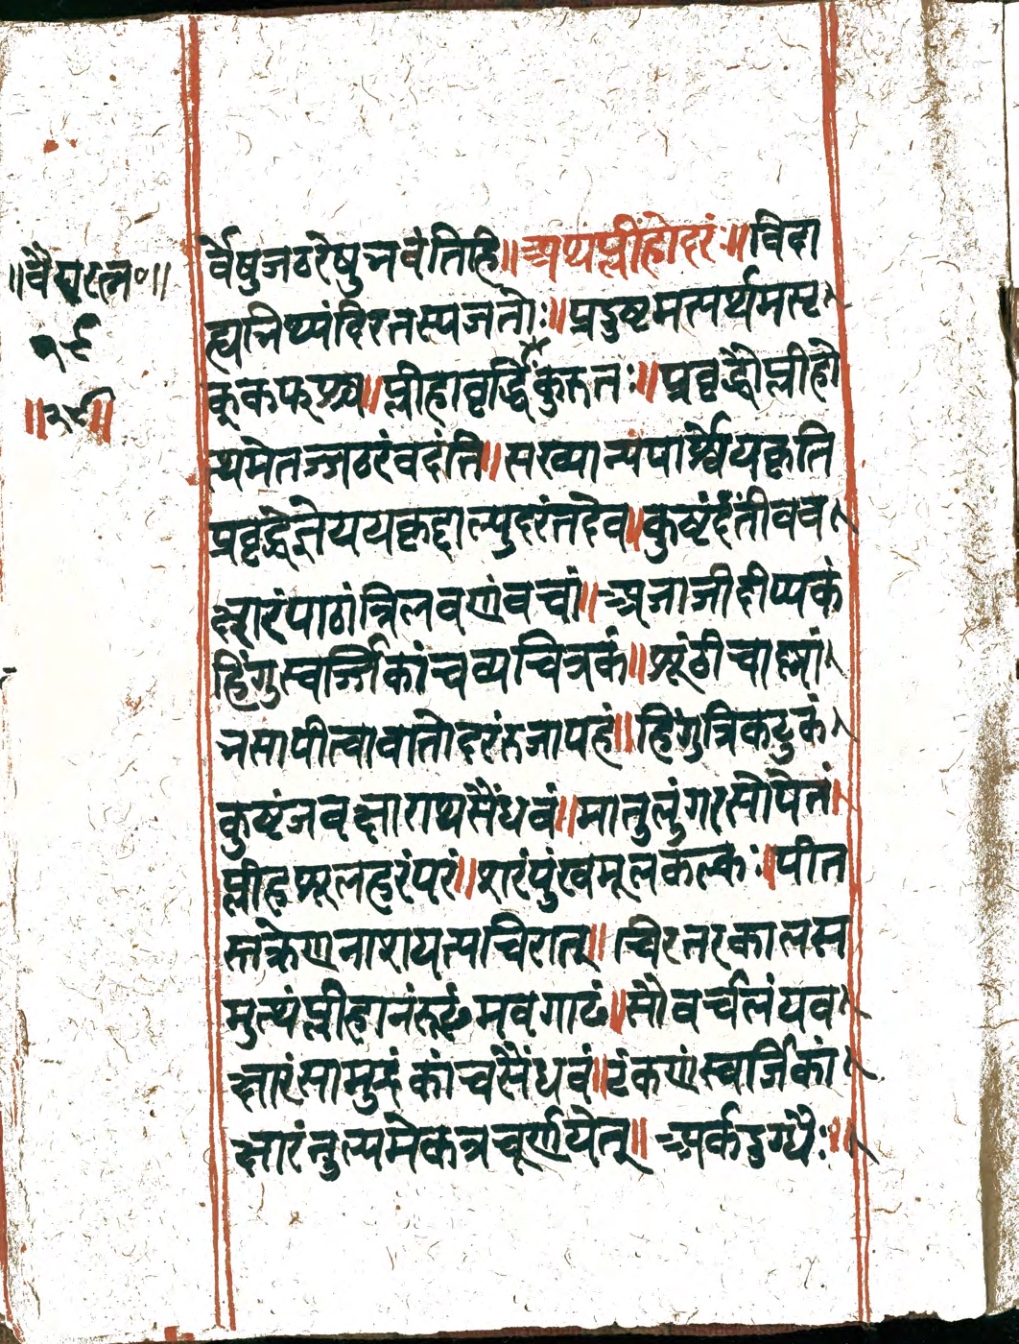 ॥वैद्यरत्न०॥
१९
॥२९॥
र्वेषुजठरेषुनवंतिहि॥अथप्लीहोदरं॥विदा
ह्यनिष्यंदिरतस्यजंतोः॥प्रदुष्टमत्यर्थमसृ
क्कफश्च॥प्लीहावृर्द्धिंकुरुतः॥प्रवृद्धौप्लीहो
त्थमेतज्जठरंवदंति॥सख्यान्यंपार्श्वेयकृति
प्रवृद्धेज्ञेययकृद्दाल्पुदरंतदेव॥कुष्टंदंतीवव
क्षारंपाठांत्रिलवणंवचां॥अजाजीदीप्यकं
हिंगुस्वर्जिकांचव्यचित्रकं॥शूंठीचाह्मां
नसापीत्वावातोदरंरुजापहं॥हिंगुत्रिकटुकं
कुष्टंजवक्षाराथसैंधवं॥मातुलुंगरसोपेतं
प्लीहशूलहरंपरं॥शरंपुंखमूलकल्कः॥पीत
स्तक्रेणनाशयत्यचिरात्॥चिरतरकालस
मुत्थंप्लीहानंरुढमवगाढं॥सौवर्चलंयव
क्षारंसामुद्रंकांचसैंधवं॥टंकणंस्वर्जिकां
क्षारंतुल्यमेकत्रचूर्णयेत्॥अर्कदुग्धैः॥